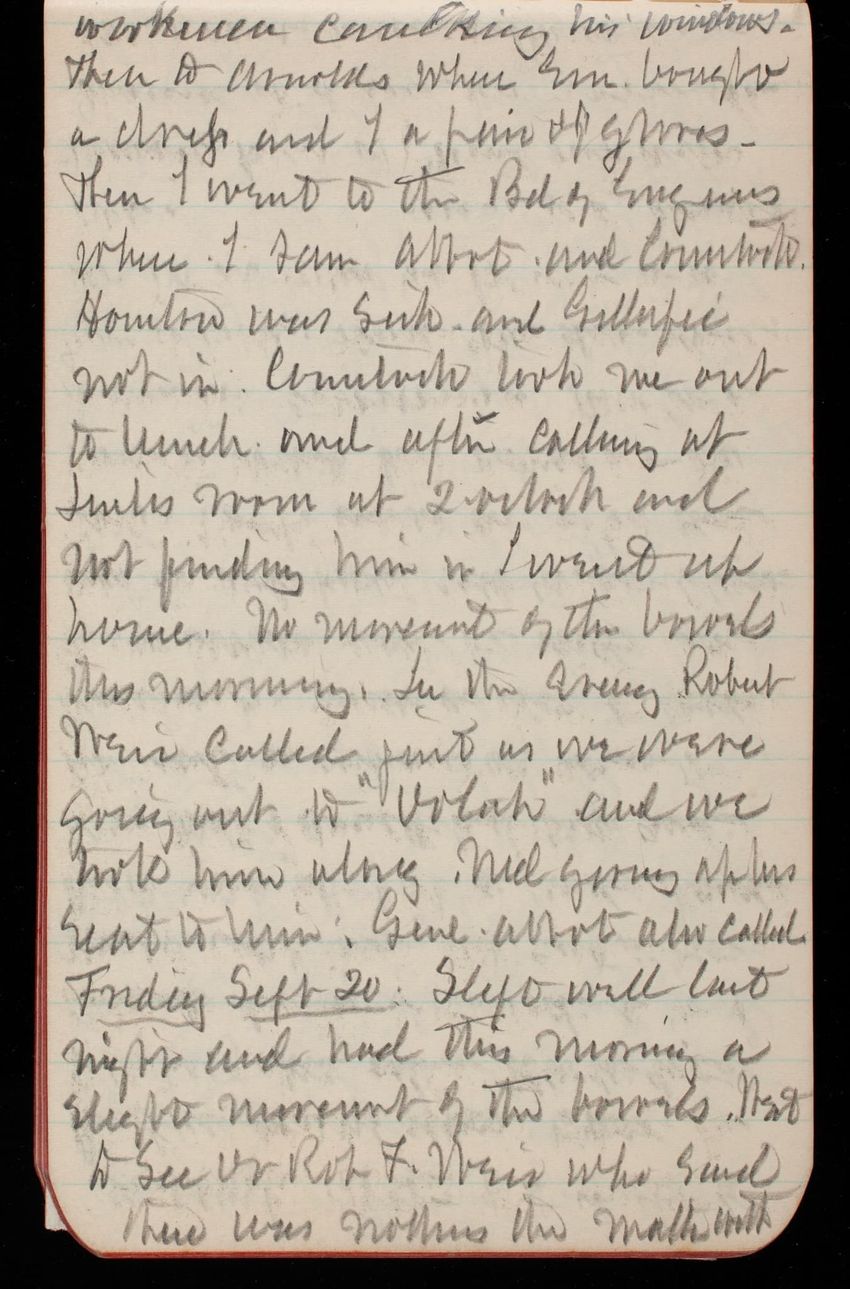 workmen caulking his windows.
Then to Arnolds when Em. bought
a dress and I a pair of gloves -
Then I went to the Bd of Engineers
when I saw Abbot and Comstock.
Houston was sick and Gillespie
not in. Comstock took me out
to lunch and after calling at
room at 2 oclock and
not finding him in I went up
home. No movement of the bowels
this morning. In the evening Robert
Weir called just as we were
going out to "Volcek" and we
took him along. Ned giving up his
seat to him. Genl. Abbot also called.
Friday Sept 20. Slept well last
night and had this morning a
slight movement of the bowels. Went
to see Dr Rob F. Weir who said
there was nothing the matter with